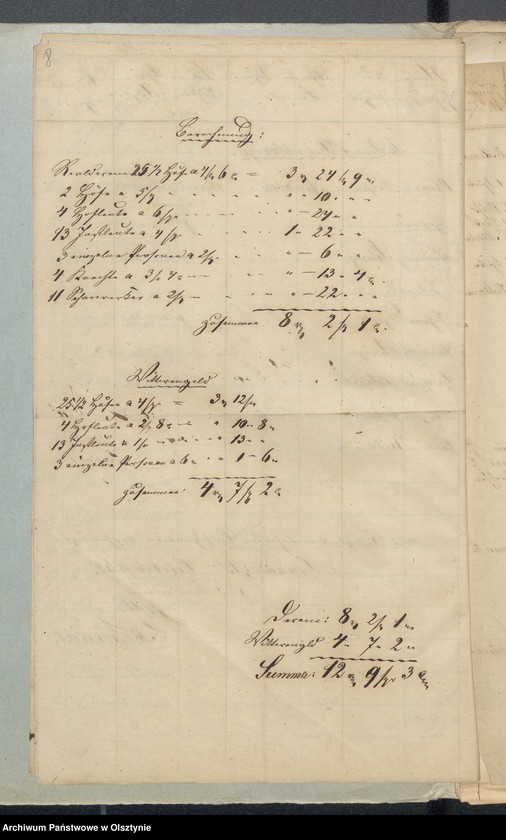 8
Berechnung:
Realdecem 25 1/2 Hufe a 4 sgr 6 d = 3 rt 24 sgr 9 d
2 Hufe a 5 sgr - - - " - 10 - -
4 Hofleute a 6 sgr - - - " - 24 - "
13 Instleute a 4 sgr - - 1 - 22 - "
3 einzelne Personen a 2 sgr - " - 6 - "
4 Knechte a 3 sgr 4 d - - " - 13 - 4 d
11 Scharwerker a 2 sgr - - - " - 22 - "
zusammen 8 rt 2 sgr 1 d.
Wittwengeld
25 1/2 Hufen a 4 sgr = 3 rt 12 sgr
4 Hofleute a 2 sgr 8 d - - " 10 - 8 -
13 Instleute a 1 sgr - - - " 13 - "
3 einzelne Personen a 6 d - " 1 - 6 -
zusammen: 4 rt 7 sgr 2 d
Decem: 8 rt 2 sgr 1 d
Wittwengeld 4 - 7 - 2 -
Summa: 12 rt 9 sgr 3 d
Archiwum Państwowe w Olsztynie